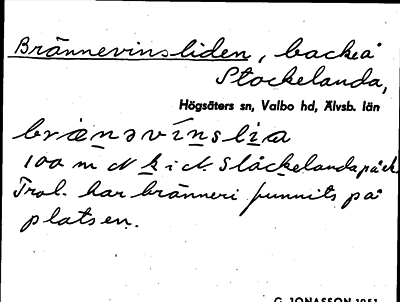 Brännevinsliden, backe å
Stockelanda,
Högsäters sn, Valbo hd, Älvsb. län
brænəvinslia
100 m N k i N. Slåckelanda på ek
Trol. har bränneri funnits på
platsen.
G. JONASSON 1951